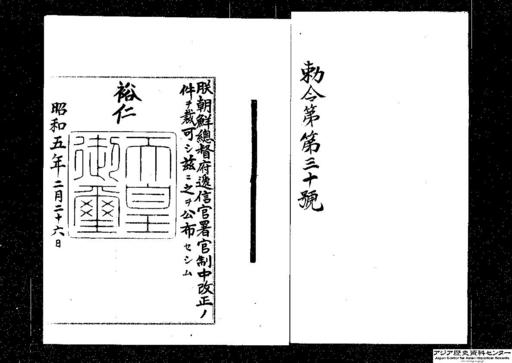 勅令第第三十號
朕朝鮮總督府遞信官署官制中改正ノ
件ヲ裁可シ茲ニ之ヲ公布セシム
裕仁
天皇
御璽
昭和五年二月二十六日
アジア歴史資料センター
Japan Center for Asian Historical Records